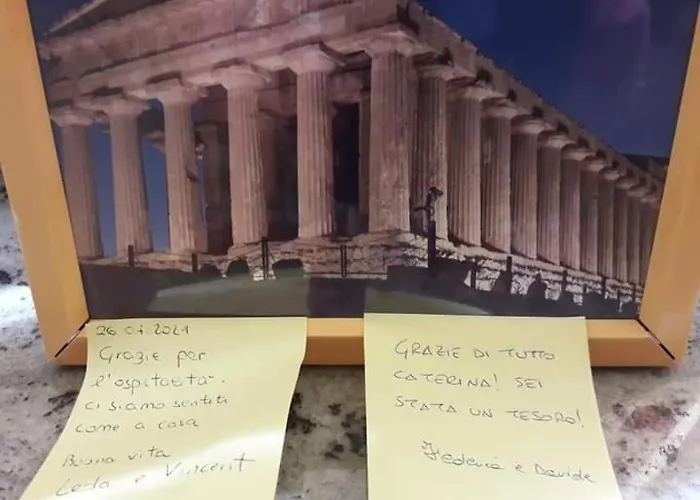 26 07.2021
Grazie per
l'ospitalità.
ci siamo sentiti
come a casa
Buona vita
Leda e Vincent
GRAZIE DI TUTTO
CATERINA! SEI
STATA UN TESORO!
Federica e Davide